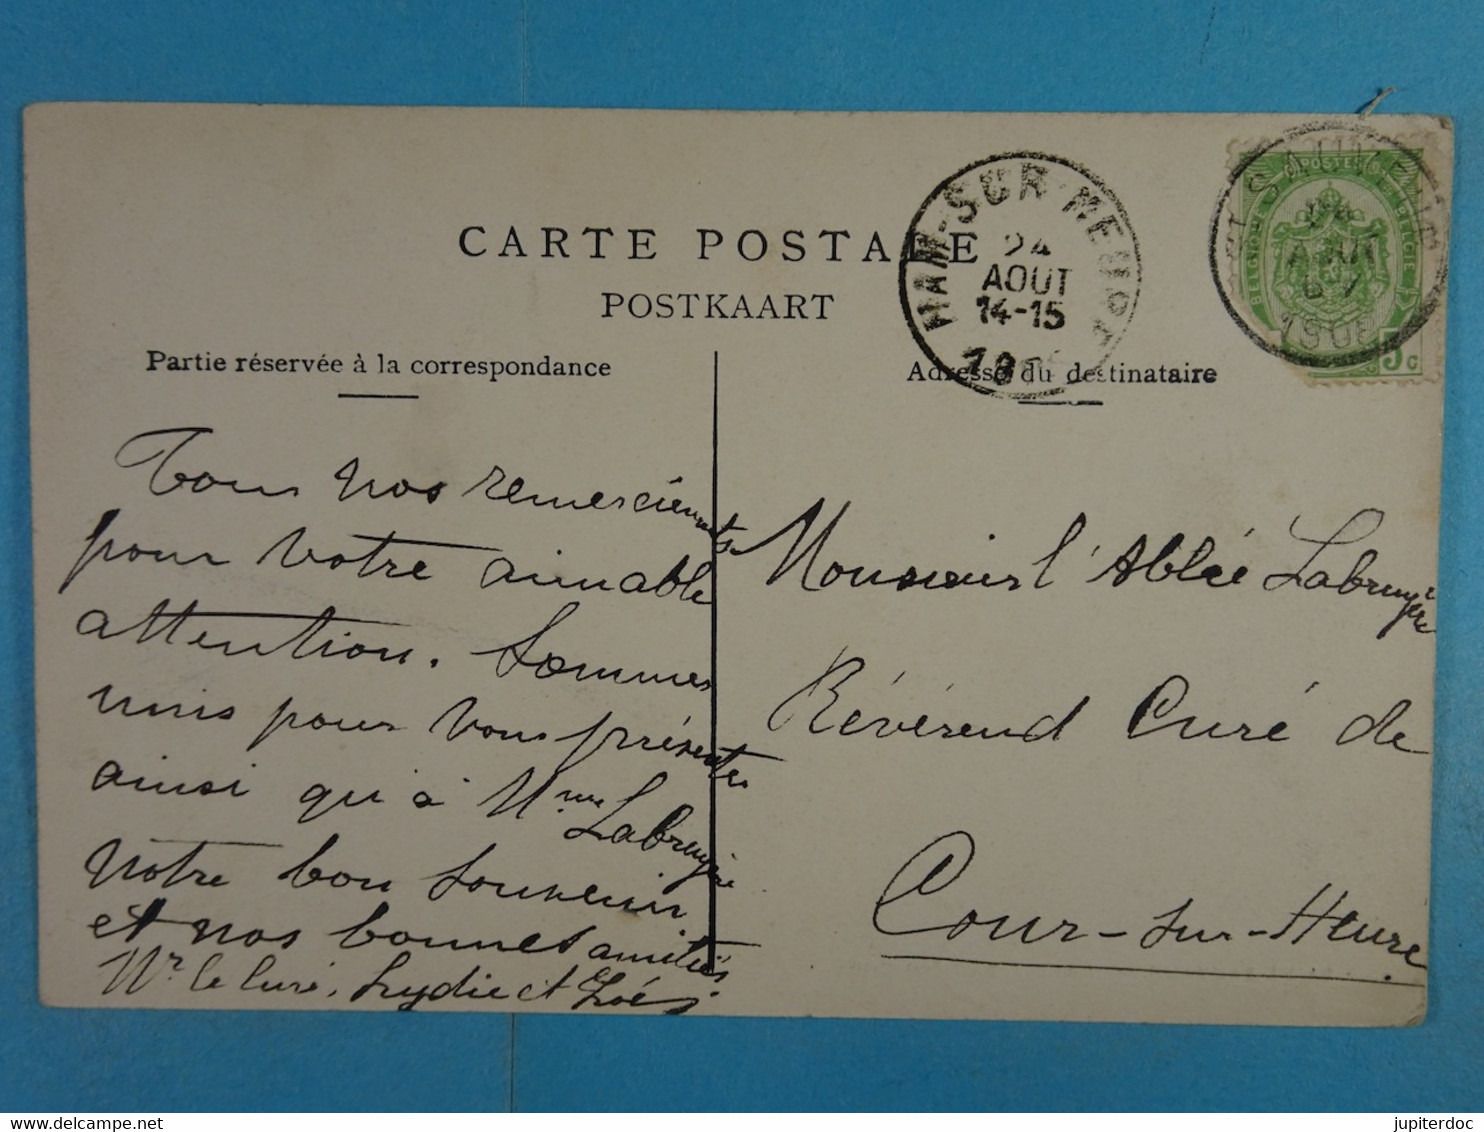 CARTE POSTALE
POSTKAART
Partie réservée à la correspondance
Adresse du destinataire
HAM-SUR-HEURE
24
AOUT
14-15
AOUT
1908
POSTES
BELGIQUE
BELGIË
5c
Tous nos remerciements
pour votre aimable
attention. Sommes
unis pour vous présenter
ainsi qu'à Mme Labruyère
notre bon souvenir
et nos bonnes amitiés.
Mr le Curé, Lydie et Zoé
Monsieur l'Abbé Labruyère
Révérend Curé de
Cour-sur-Heure.
www.delcampe.net
jupiterdoc